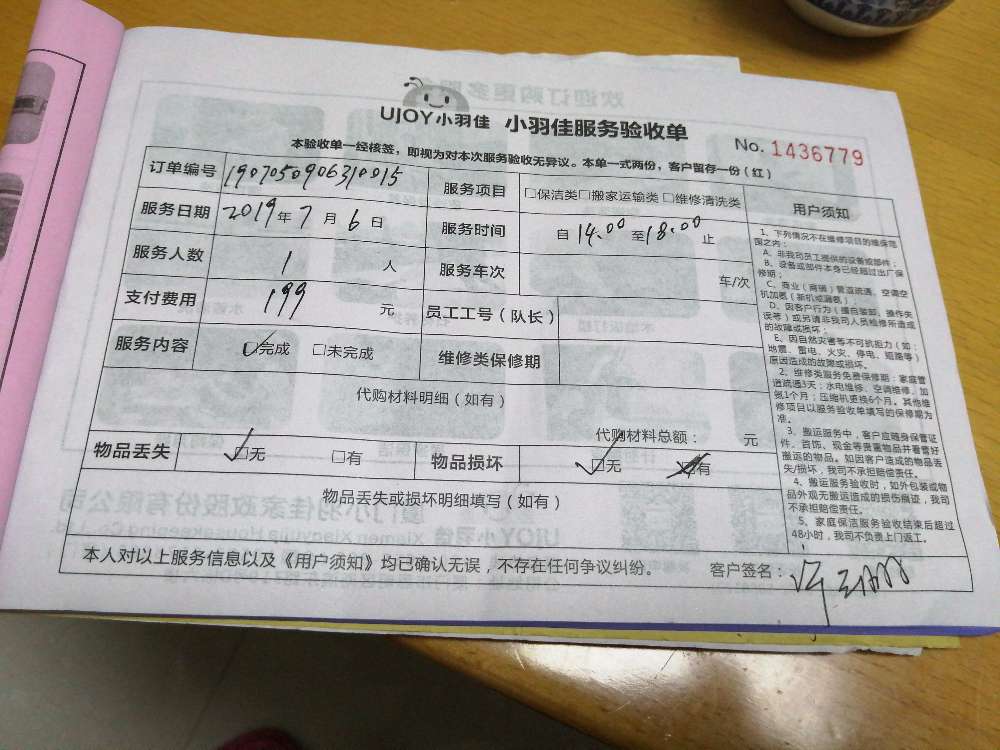 UJOY小羽佳 小羽佳服务验收单
No. 1436779
本验收单一经核签，即视为对本次服务验收无异议。本单一式两份，客户留存一份（红）
订单编号 1907050906310015 服务项目 □保洁类□搬家运输类□维修清洗类
服务日期 2019年7月6日 服务时间 自14:00至18:00止
服务人数 1 人 服务车次 车/次
支付费用 199 元 员工工号（队长）
服务内容 ☑完成 □未完成 维修类保修期
代购材料明细（如有）
代购材料总额： 元
物品丢失 ☑无 □有 物品损坏 ☑无 □有
物品丢失或损坏明细填写（如有）
本人对以上服务信息以及《用户须知》均已确认无误，不存在任何争议纠纷。 客户签名：
用户须知
1、下列情况不在维修项目的维保范
围之内：
A、非我司员工提供的设备或部件；
B、设备或部件本身已经超过出厂保
修期；
C、商业（商铺）管道疏通、空调空
机加氨（新机或漏氨）；
D、因客户行为（擅自装卸、操作失
误等）或另请非我司人员检修所造成
的故障或损坏；
E、因自然灾害等不可抗拒力（如：
地震、雷电、火灾、停电、短路等）
原因造成的故障或损坏。
2、维修类服务免费保修期：家庭管
道疏通3天；水电维修、空调维修、加
氨1个月；压缩机更换6个月。其他维
修项目以服务验收单填写的保修期为
准。
3、搬运服务中，客户应随身保管证
件、首饰、现金等贵重物品并看管好
搬运的物品。如因客户造成的物品丢
失/损坏，我司不承担赔偿责任。
4、搬运服务验收时，如外包装或物
品外观无搬运造成的损伤痕迹，我司
不承担赔偿责任。
5、家庭保洁服务验收结束后超过
48小时，我司不负责上门返工。